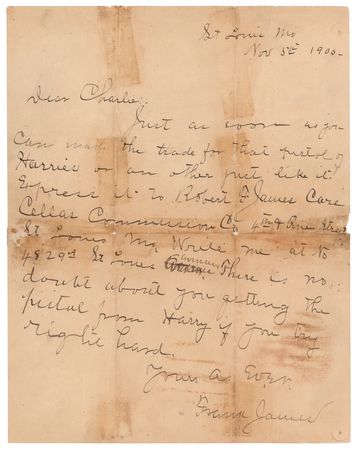 St Louis Mo
Nov 5th 1900-
Dear Charlie;
Just as soon as you
can make the trade for that pistol of
Harries or an other just like it
Express it to Robert F James Care
Cellar Commission Co 4th & Pine Street
St Louis Mo, Write me at No
4829a St Louis Avenue There is no
doubt about you getting the
pistal from Harry if you try
right hard.
Yours As Ever.
Frank James